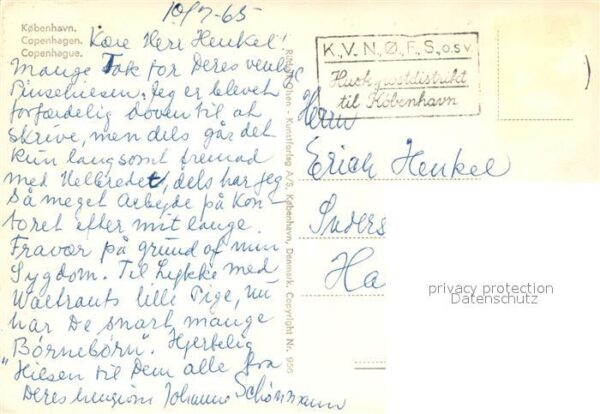 10/7-65
København.
Copenhagen.
Copenhague.
Kære Herr Henkel!
Mange Tak for Deres venlige
Pinsehilsen. Jeg er blevet
forfærdelig doven til at
skrive, men dels går det
kun langsomt fremad
med Helbredet, dels har jeg
så meget Arbejde på Kon-
toret efter mit lange
Fravær på grund af min
Sygdom. Til Lykke med
Waltrauts lille Pige, nu
har De snart mange
"Børnebørn". Hjertelig
Hilsen til Dem alle fra
Deres hengivne Johanne Schönmann
Kunstforlag A/S, København, Danmark. Copyright Nr. 966
K.V.N.Ø.F.S., o.s.v.
Husk postdistrikt
til København
Herrn
Erich Henkel
Suders
Ha
privacy protection
Datenschutz